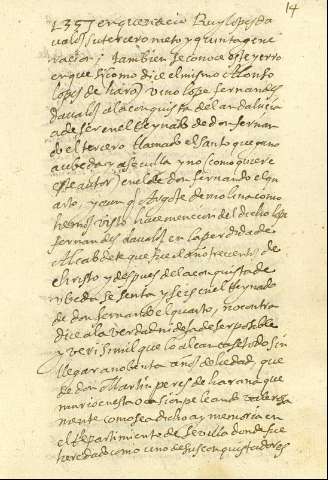 14
1357 en que nacio Ruy lopes da
valos su tercero nieto y quinta gene
racion; tambien se conoce este yerro
en que si como dice el mismo Alonso
lopes de haro, vino lope fernandes
davalos a la conquista del andalucia
a de ser en el Reynado de don fernan
do el tercero llamado el santo que gano
a ubeda y a sevilla y no como quiere
este autor en el de don fernando el qu
arto, y aunq Argote de molina como
hemos visto hace mencion del dicho lope
fernandes davalos en la perdida de
Alcaudete que fue el año trecientos de
christo y despues de la conquista de
ubeda sesenta y seis en el Reynado
de don fernando el quarto, no contra
dice a la verdad ni dexa de ser posible
y verisimil que lo alcançase todo sin
llegar a nobenta años de edad, que
de don Martin peres de harana que
murio en esta ocasion peleando valerosa
mente como se a dicho ay memoria en
el Repartimiento de Sevilla donde fue
heredado como uno de sus conquistadores